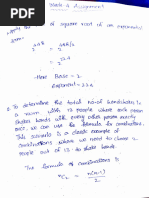 Week 4 Assignment
of square root of an exponential
term:
2^44/2
2^22
Here Base = 2
Exponent = 22
To determine the total no. of handshakes in
a room with 13 people where each person
shakes hands with every other person exactly
once, we can use the formula for combinations.
This scenario is a classic example of
combinations where we need to choose 2
people out of 13 to shake hands.
The formula of combinations is
nC2 = n(n-1)
2